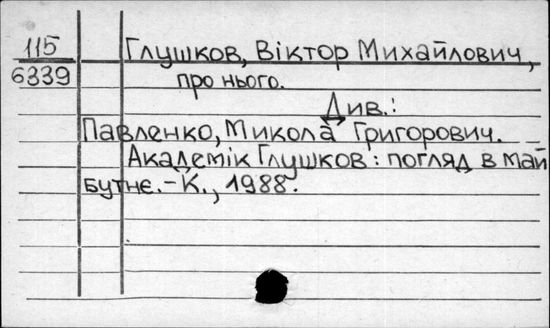 115
6339
Глушков, Віктор Михайлович,
про нього.
Див.:
Павленко, Микола Григорович.
Академік Глушков: погляд в май
бутнє. - К., 1988.